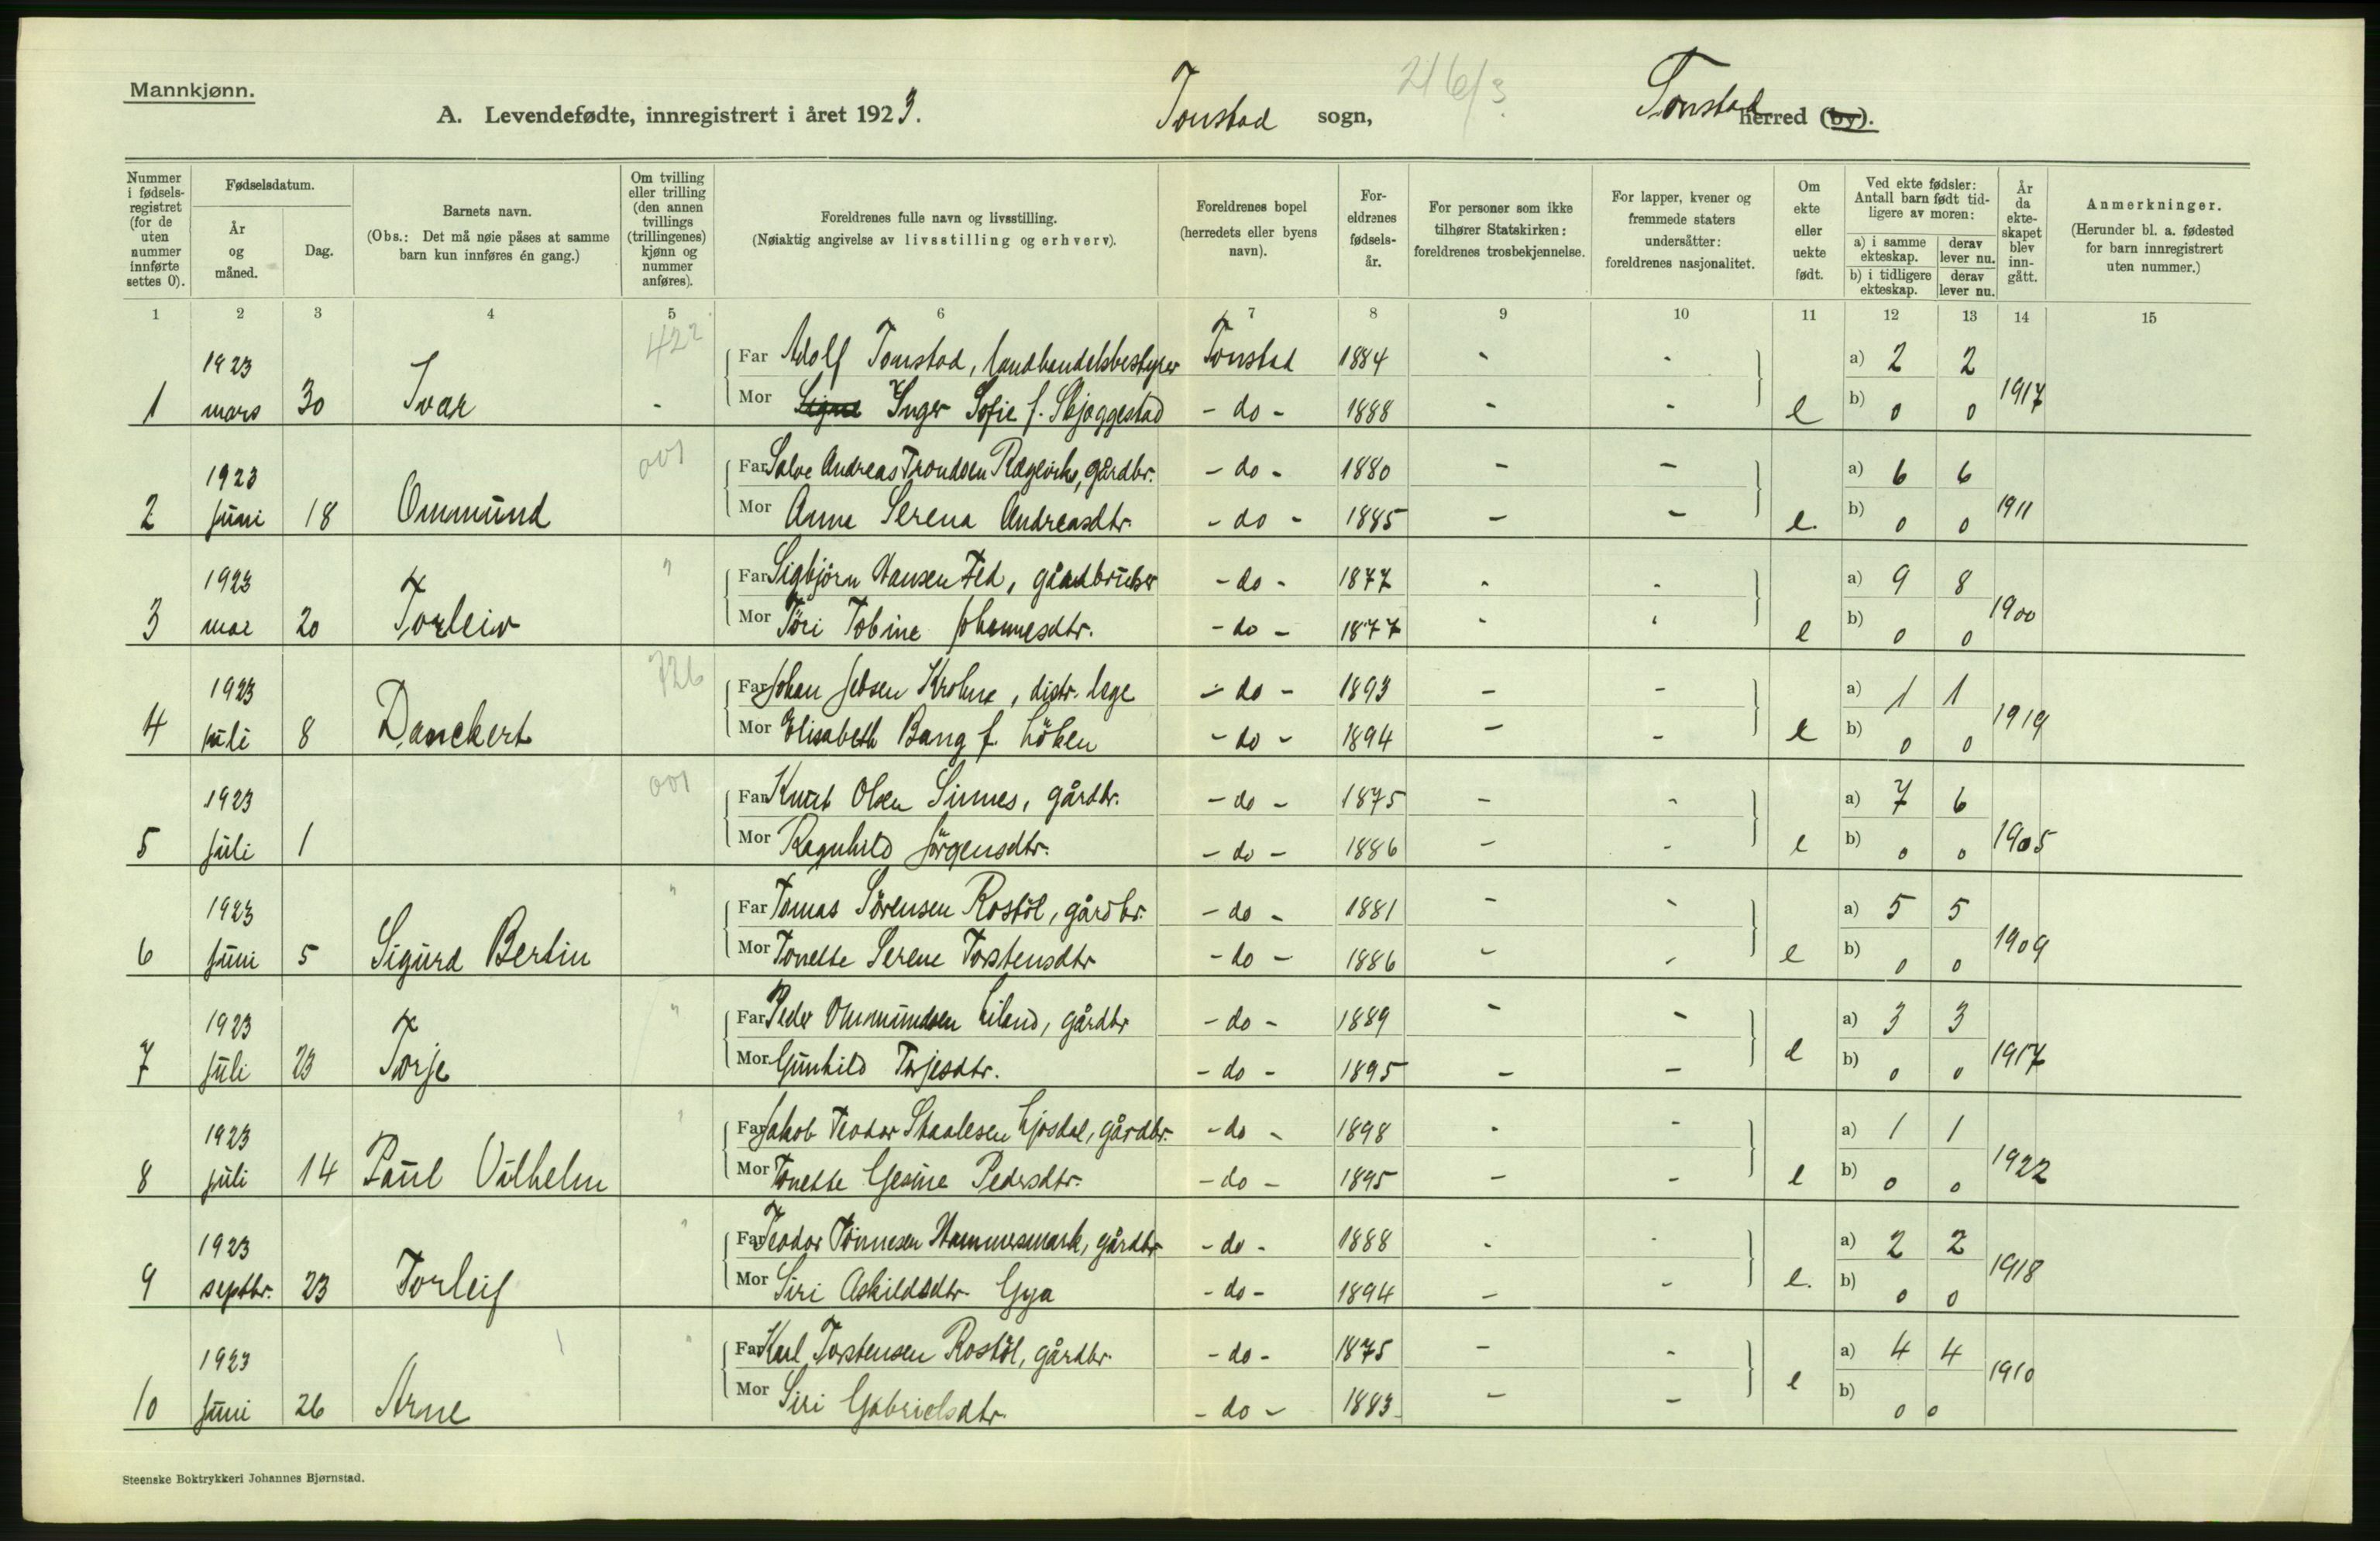 Mannkjønn.
A. Levendefødte, innregistrert i året 1923.
Tonstad sogn,
216/3
Tonstad herred (by).
Nummer i fødselsregistret (for de uten nummer innførte settes 0).
Fødselsdatum.
År og måned.
Dag.
Barnets navn.
(Obs.: Det må nøie påses at samme barn kun innføres én gang.)
Om tvilling eller trilling (den annen tvillings (trillingenes) kjønn og nummer anføres).
Foreldrenes fulle navn og livsstilling.
(Nøiaktig angivelse av livsstilling og erhverv).
Foreldrenes bopel (herredets eller byens navn).
Foreldrenes fødselsår.
For personer som ikke tilhører Statskirken: foreldrenes trosbekjennelse.
For lapper, kvener og fremmede staters undersåtter: foreldrenes nasjonalitet.
Om ekte eller uekte født.
Ved ekte fødsler: Antall barn født tidligere av moren:
a) i samme ekteskap. derav lever nu.
b) i tidligere ekteskap. derav lever nu.
År da ekteskapet blev inngått.
Anmerkninger.
(Herunder bl. a. fødested for barn innregistrert uten nummer.)
1 2 3 4 5 6 7 8 9 10 11 12 13 14 15
1923 422 Far Adolf Tonstad, landhandelsbestyrer Tonstad 1884 - - a) 2 2
1 mars 30 Ivar - Mor Signe Inger Sofie f. Skjeggestad - do - 1888 - - e b) 0 0 1917
1923 001 Far Salve Andreas Trondsen Rægevik, gårdbr. - do - 1880 - - a) 6 6
2 juni 18 Ommund Mor Anna Serena Andreasdtr. - do - 1885 - - e. b) 0 0 1911
1923 " Far Sigbjörn Hansen Fed, gårdbruker - do - 1877 - - a) 9 8
3 mai 20 Torleiv Mor Töri Tobine Johannesdtr. - do - 1877 - - e b) 0 0 1900
1923 726 Far Johan Jebsen Krohne, distr. læge - do - 1893 - - a) 1 1
4 juli 8 Danckert Mor Elisabeth Bang f. Löken - do - 1894 - - e b) 0 0 1919
1923 001 Far Knut Olsen Sinnes, gårdbr. - do - 1875 - - a) 7 6
5 juli 1 Mor Ragnhild Jörgensdtr. - do - 1886 - - e b) 0 0 1905
1923 " Far Tomas Sörensen Rostöl, gårdbr. - do - 1881 - - a) 5 5
6 juni 5 Sigurd Bertin Mor Tonette Serene Torstensdtr - do - 1886 - - e b) 0 0 1909
1923 " Far Peder Ommundsen Liland, gårdbr - do - 1889 - - a) 3 3
7 juli 23 Torje Mor Gunhild Torjesdtr. - do - 1895 - - e b) 0 0 1917
1923 " Far Jakob Teodor Staalesen Ljosdal, gårdbr. - do - 1898 - - a) 1 1
8 juli 14 Paul Vilhelm Mor Tonette Gesine Pedersdtr. - do - 1895 - - e b) 0 0 1922
1923 " Far Teodor Tönnesen Hammersmark, gårdbr - do - 1888 - - a) 2 2
9 septbr. 23 Torleif Mor Siri Askildsdtr. Gya - do - 1894 - - e. b) 0 0 1918
1923 " Far Karl Torstensen Rostöl, gårdbr. - do - 1875 - - a) 4 4
10 juni 26 Arne Mor Siri Gabrielsdtr. - do - 1883 - - e b) 0 0 1910
Steenske Boktrykkeri Johannes Bjørnstad.